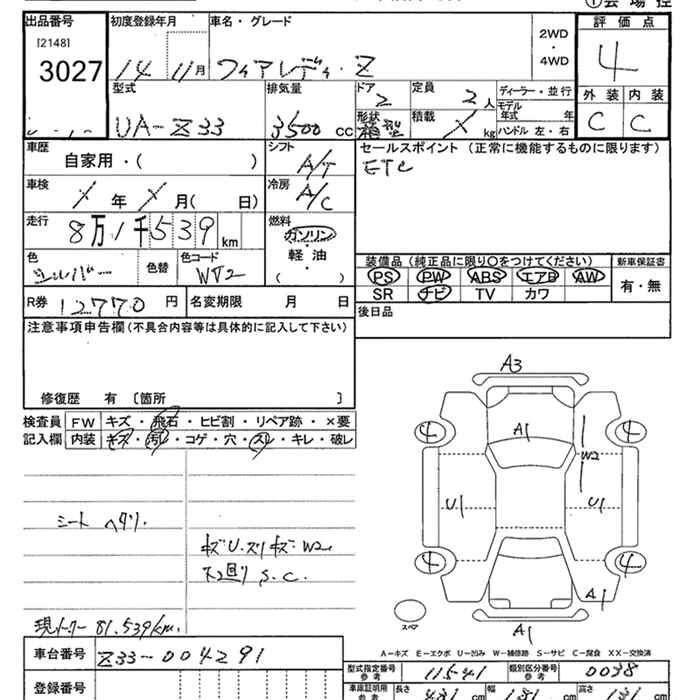 ①会場控
出品番号
[2148]
3027
初度登録年月
14 11月
車名・グレード
フェアレディ・Z
2WD
・
4WD
評価点
4
外装 内装
C C
型式
UA-Z33
排気量
3500cc
ドア
2
定員
2人
形状
積載
X kg
ディーラー・並行
モデル年式 年
ハンドル 左・右
車歴
自家用・( )
シフト
A/T
冷房
A/C
車検
X年X月( 日)
走行
8万1千539km
燃料
ガソリン
・
軽油
・
( )
色
シルバー
色替
色コード
WV2
R券 12770円
名変期限 月 日
セールスポイント(正常に機能するものに限ります)
ETC
装備品(純正品に限り○をつけてください)
PS PW ABS エアB AW
SR ナビ TV カワ
新車保証書
有・無
後日品
注意事項申告欄(不具合内容等は具体的に記入して下さい)
修復歴 有 〔箇所 〕
検査員記入欄
FW キズ・飛石・ヒビ割・リペア跡・×要
内装 キズ・汚レ・コゲ・穴・スレ・キレ・破レ
シート ヘタリ.
キズU.スリキズ W2
下回り S.C.
現メーター 81.539km.
A3
A1
4 4
W2
U1 U1
4 4
A1
スペア
A1
A−キズ E−エクボ U−凹み W−補修跡 S−サビ C−腐食 XX−交換済
車台番号 Z33-004291
登録番号
型式指定番号 参考 11541
類別区分番号 参考 0038
車庫証明用 参考
長さ 431cm
幅 181cm
高さ 131cm